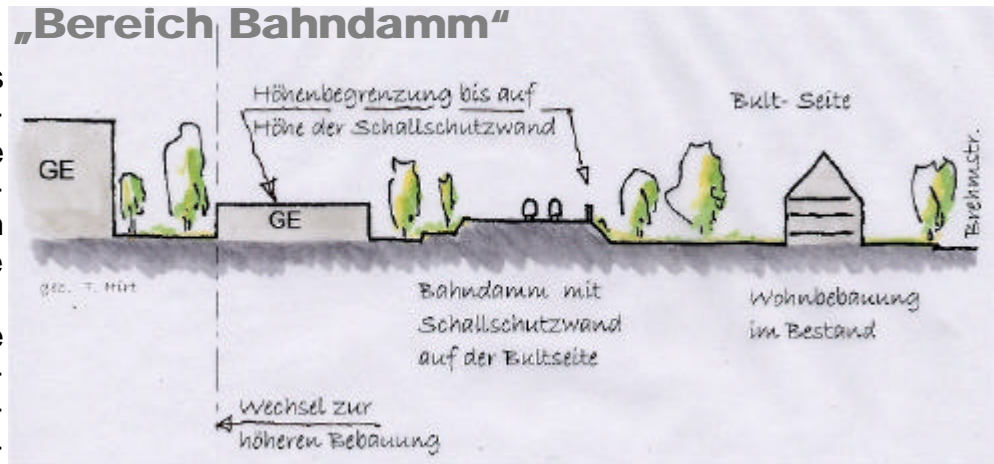 „Bereich Bahndamm“
Höhenbegrenzung bis auf
Höhe der Schallschutzwand
Bult- Seite
GE
GE
Brehmstr.
gez. T. Hirt
Bahndamm mit
Schallschutzwand
auf der Bultseite
Wohnbebauung
im Bestand
Wechsel zur
höheren Bebauung